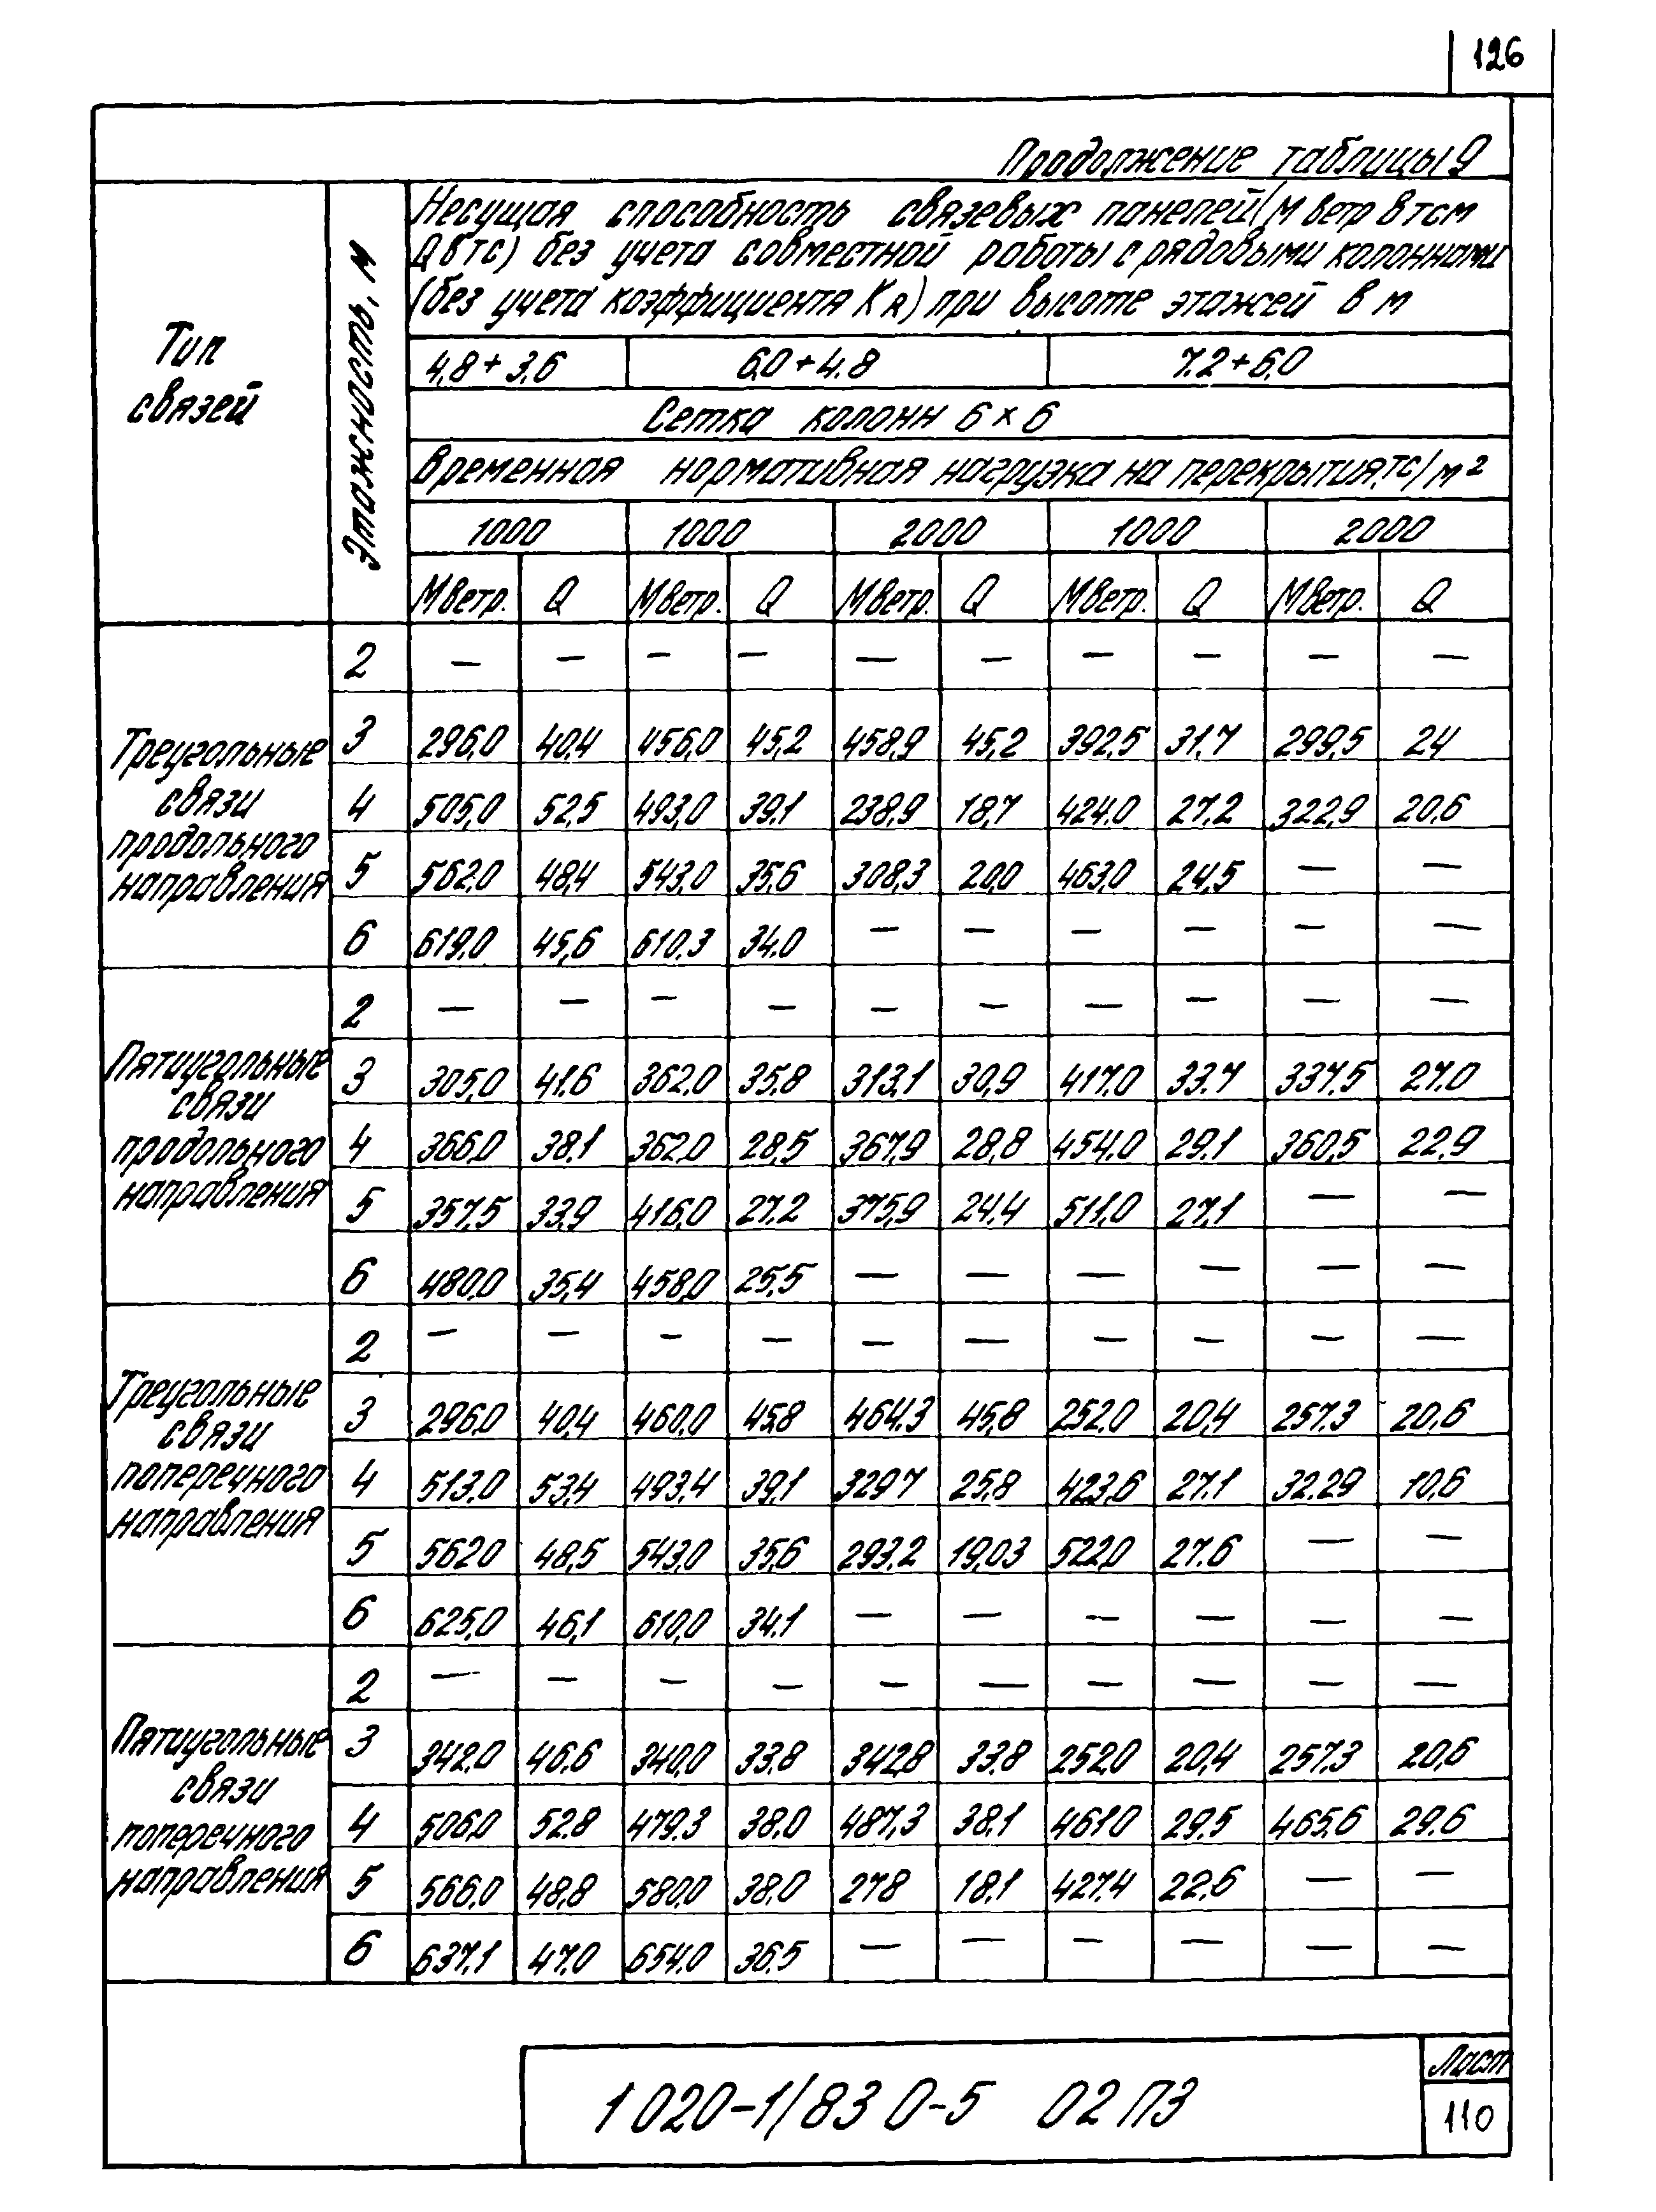 126
Продолжение таблицы 9
Тип
связей
Этажность, м
Несущая способность связевых панелей (М ветр в тсм
Q в тс) без учета совместной работы с рядовыми колоннами
(без учета коэффициента K R) при высоте этажей в м
4,8+3,6 6,0+4.8 7.2+6,0
Сетка колонн 6×6
Временная нормативная нагрузка на перекрытия, тс/м²
1000 1000 2000 1000 2000
М ветр. Q М ветр. Q М ветр. Q М ветр. Q М ветр. Q
Треугольные
связи
продольного
направления
2 — — — — — — — — — —
3 296,0 40,4 456,0 45,2 458,9 45,2 392,5 31.7 299,5 24
4 505,0 52,5 493,0 39,1 238,9 18,7 424,0 27,2 322,9 20,6
5 562,0 48,4 543,0 35,6 308,3 20,0 463,0 24,5 — —
6 619,0 45,6 610,3 34,0 — — — — — —
Пятиугольные
связи
продольного
направления
2 — — — — — — — — — —
3 305,0 41.6 362,0 35,8 313,1 30,9 417,0 33.7 337,5 27.0
4 366,0 38,1 362,0 28,5 367,9 28,8 454,0 29.1 360,5 22,9
5 357,5 33,9 416,0 27.2 375,9 24,4 511,0 27,1 — —
6 480,0 35,4 458,0 25,5 — — — — — —
Треугольные
связи
поперечного
направления
2 — — — — — — — — — —
3 296,0 40,4 460,0 45,8 464.3 45,8 252,0 20,4 257,3 20,6
4 513,0 53,4 493,4 39,1 329 7 25,8 423,6 27.1 32.29 10,6
5 5620 48,5 543,0 35,6 293.2 19,03 522,0 27.6 — —
6 625,0 46,1 610,0 34.1 — — — — — —
Пятиугольные
связи
поперечного
направления
2 — — — — — — — — — —
3 342,0 46.6 340,0 33.8 342,8 33.8 252,0 20,4 257,3 20,6
4 506,0 52.8 479,3 38.0 487,3 38,1 461,0 29.5 465,6 29.6
5 566,0 48,8 580,0 38,0 278 18,1 427,4 22,6 — —
6 637,1 47,0 654,0 36,5 — — — — — —
1 020-1/83 0-5 02 ПЗ
Лист
110